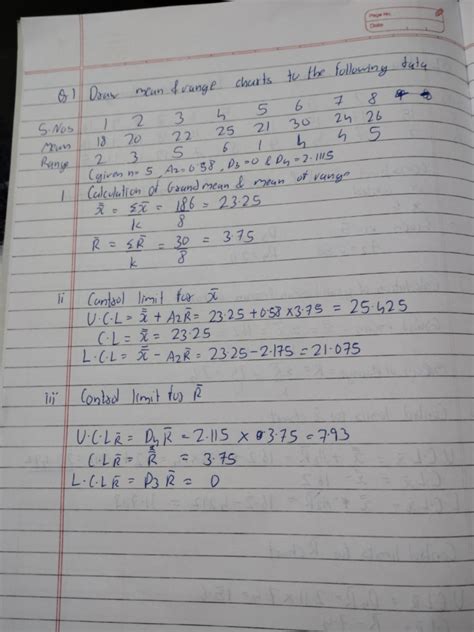 Page No.
Date
Q1 Draw mean & range charts to the following data
S.Nos 1 2 3 4 5 6 7 8
Mean 18 20 22 25 21 30 24 26
Range 2 3 5 6 1 4 4 5
(given n=5, A2=0.58, D3=0 & D4=2.115)
i Calculation of Grand mean & mean of range
x̿ = Σx̄ = 186 = 23.25
k 8
R̄ = ΣR̄ = 30 = 3.75
k 8
ii Control limit for x̄
U.C.L = x̿ + A2R̄ = 23.25 + 0.58 × 3.75 = 25.425
C.L = x̿ = 23.25
L.C.L = x̿ - A2R̄ = 23.25 - 2.175 = 21.075
iii Control limit for R̄
U.C.L R̄ = D4 R̄ = 2.115 × 3.75 = 7.93
C.L R̄ = R̄ = 3.75
L.C.L R̄ = D3 R̄ = 0